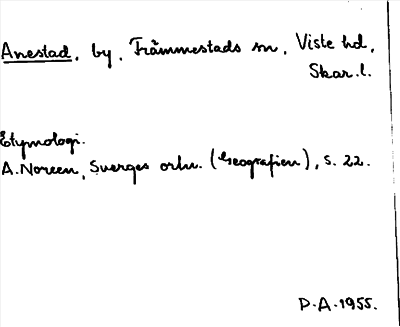 Anestad, by, Främmestads sn, Viste hd,
Skar.l.
Etymologi.
A. Noreen, Sverges ortn. (Geografien), s. 22.
P.A. 1955.